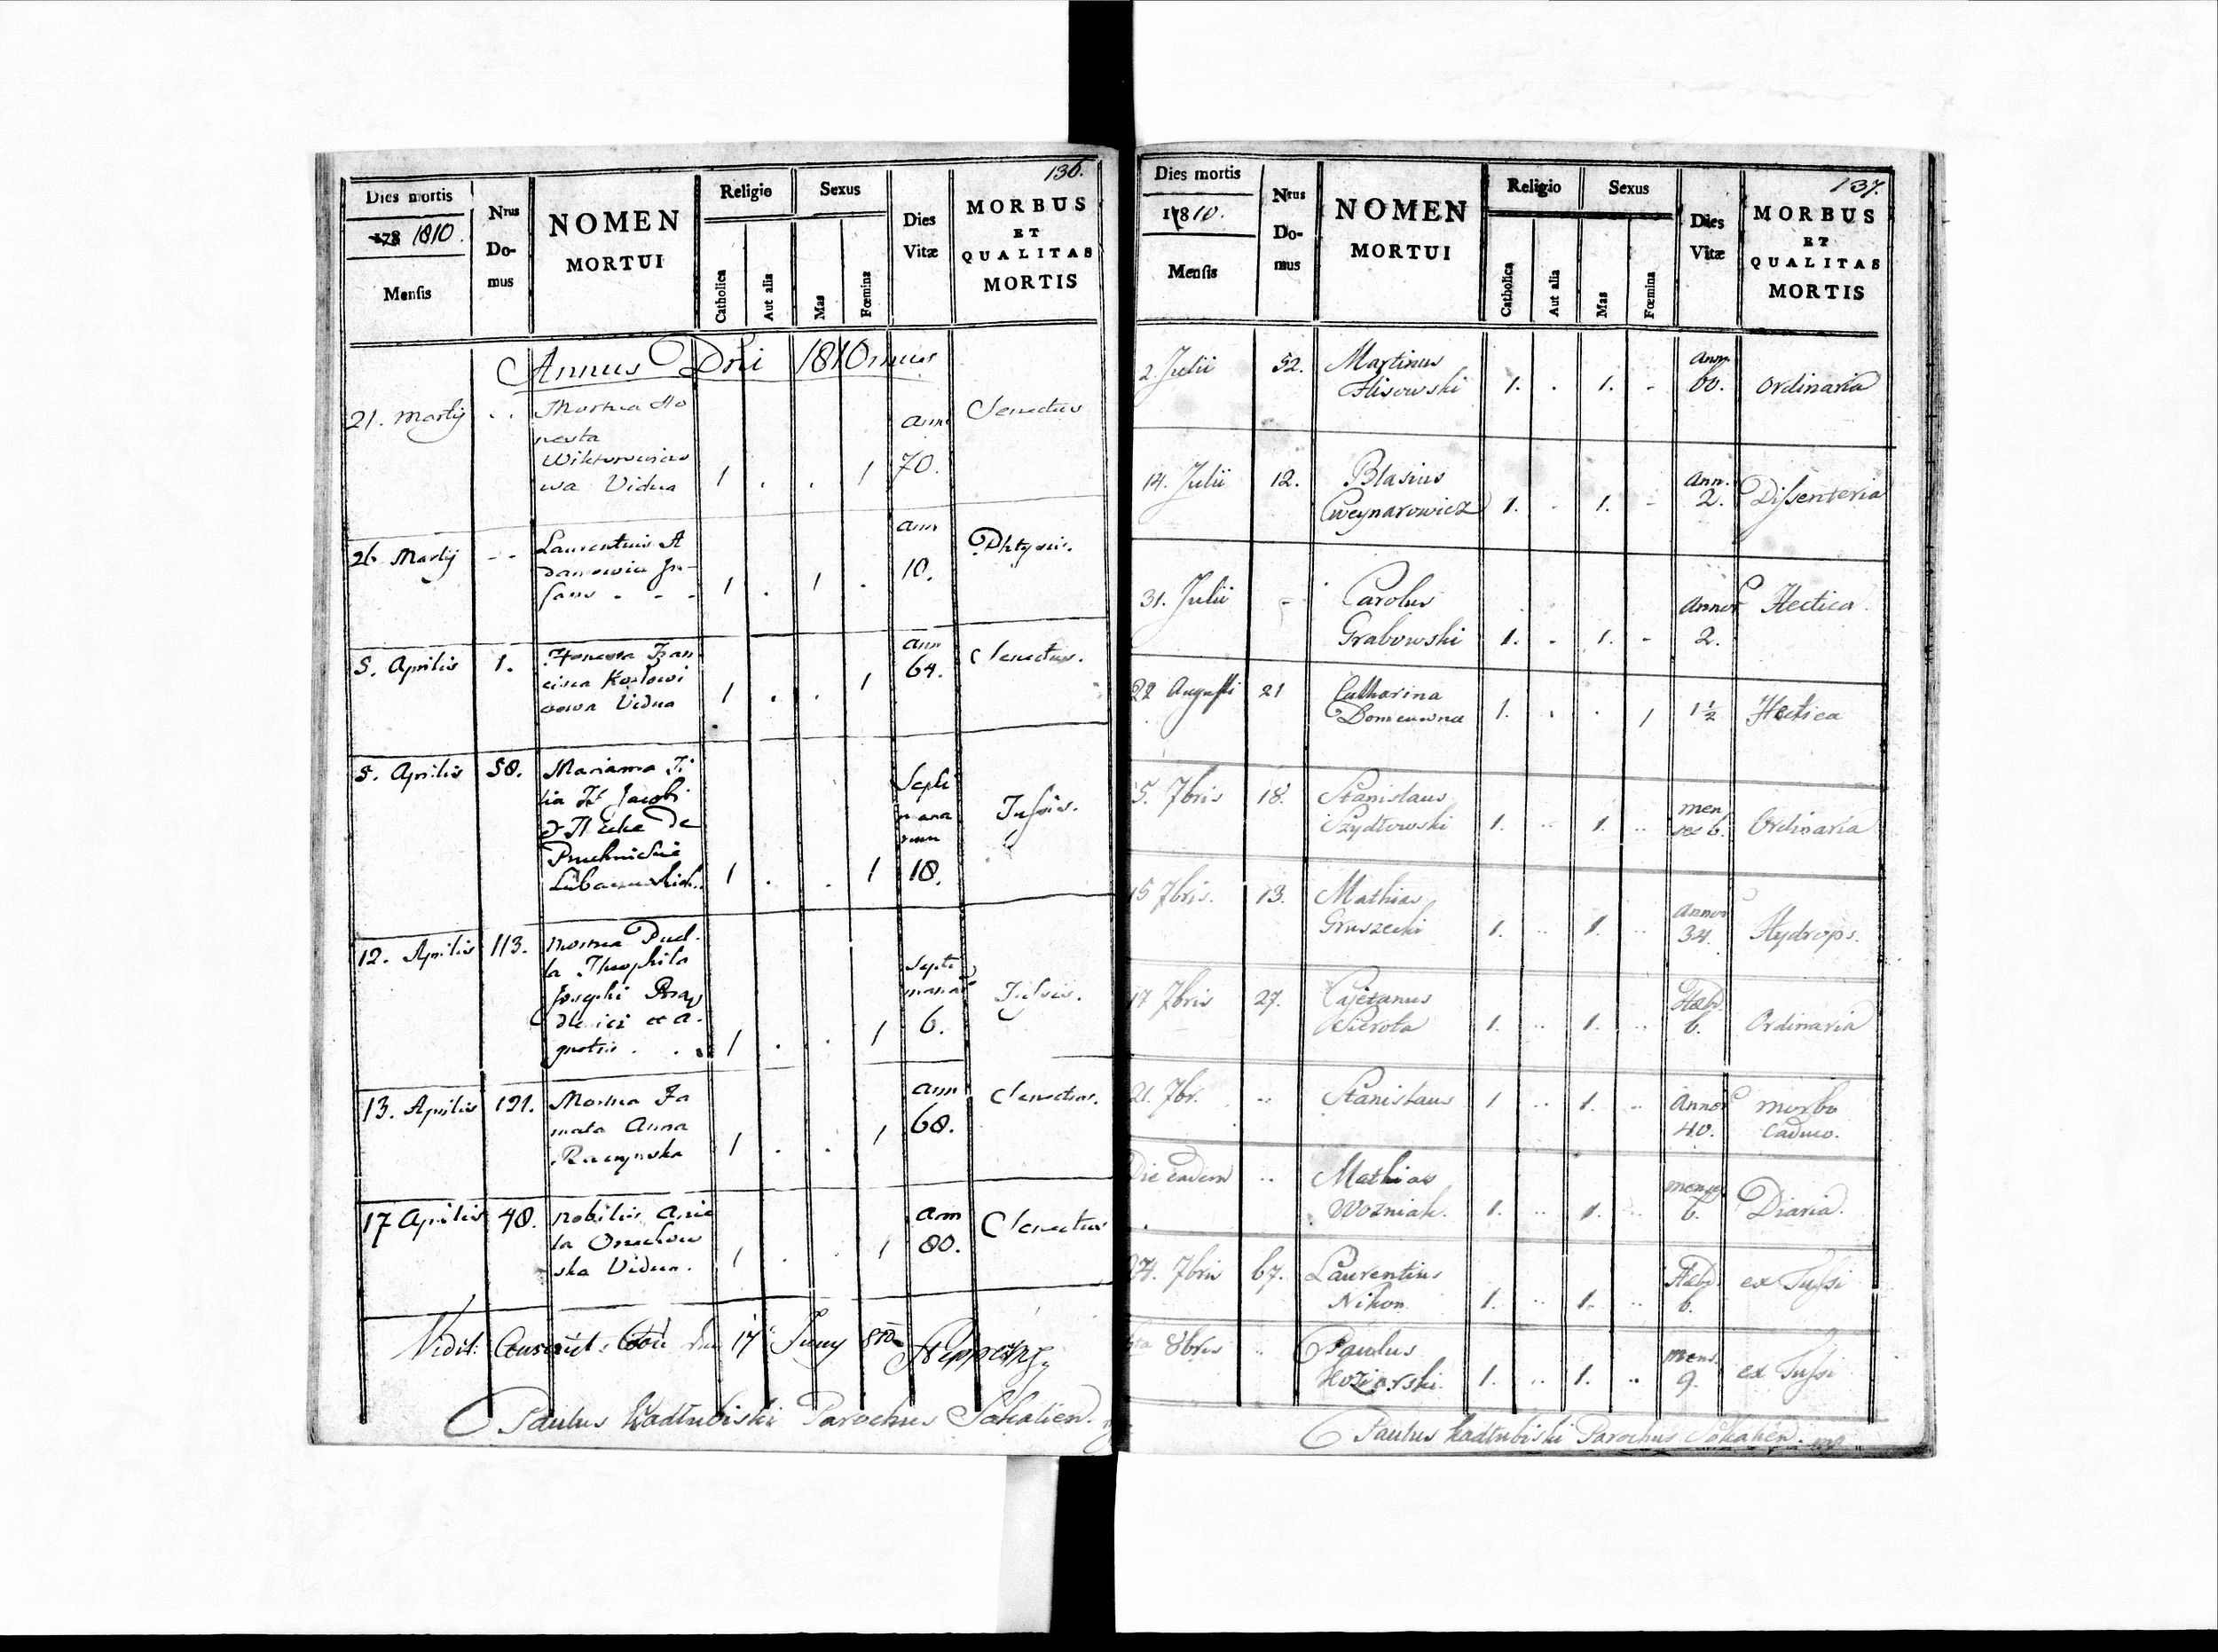 136.
Dies mortis
178 1810.
Mensis
Nrus
Do-
mus
NOMEN
MORTUI
Religio
Catholica
Aut alia
Sexus
Mas
Fœmina
Dies
Vitæ
MORBUS
ET
QUALITAS
MORTIS
Annus Dni 1810mus
21. Martij . . Mortua Ho
nesta
Wiktorowiczo
wa Vidua 1 . . 1 ann 70. Senectus
26 Martij - - Laurentius A
damowicz In-
fans - - - 1 . 1 . ann 10. Phtysis.
5. Aprilis 1. Honesta Fran
cisca Kozlowi
czowa Vidua 1 . . 1 ann 64. Senectus.
5. Aprilis 58. Marianna Fi
lia Jacobi
de
Pruchnickie
1 . . 1 Septi
mana
rum
18. Tussis.
12. Aprilis 113. mortua Puel
la Theophila
Josephi
et A.
gnetis . . 1 . . 1 Septi
manar
6. Tussis.
13. Aprilis 121. Mortua Fa
mata Anna
Raczynska 1 . . 1 ann 68. Senectus.
17 Aprilis 48. nobilis Anie
la Orzechow
ska Vidua. 1 . . 1 ann 80. Senectus
Vidit 17 Juny 810
Paulus Kadłubiski Parochus Sokalien.
137.
Dies mortis
1810.
Mensis
Nrus
Do-
mus
NOMEN
MORTUI
Religio
Catholica
Aut alia
Sexus
Mas
Fœmina
Dies
Vitæ
MORBUS
ET
QUALITAS
MORTIS
2. Julii 52. Martinus
Hisowski 1. . 1. - Ann. 60. Ordinaria
14. Julii 12. Blasius
Cweynarowicz 1. - 1. - Ann. 2. Dissenteria
31. Julii - Carolus
Grabowski 1. - 1. - Annor 2. Hectica.
22 Augusti 21 Catharina
1. . . 1 1½ Hectica
5. 7bris 18. Stanislaus
Szydłowski 1. .. 1. .. men
ses 6. Ordinaria
15 7bris. 13. Mathias
Gruszecki 1. .. 1. .. Annor 34. Hydrops.
17 7bris 27. Cajetanus
Sierota 1. .. 1. .. Hebd. 6. Ordinaria
21. 7br. .. Stanislaus 1 .. 1. .. Annor 40. morbo
Caduco.
Die eadem .. Mathias
Wozniak. 1. .. 1. .. mens. 6. Diaria.
27. 7bris 67. Laurentius
Nikon 1. .. 1. .. Hebd. 6. ex Tussi
8bris .. Paulus
Koziarski. 1. .. 1. .. Mens. 9. ex Tussi
Paulus Kadłubiski Parochus Sokalien.